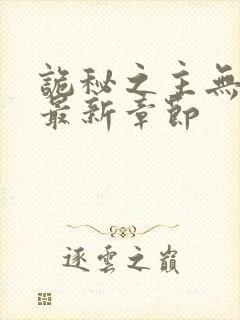 詭秘之主無
最新章節
逐雲之巔